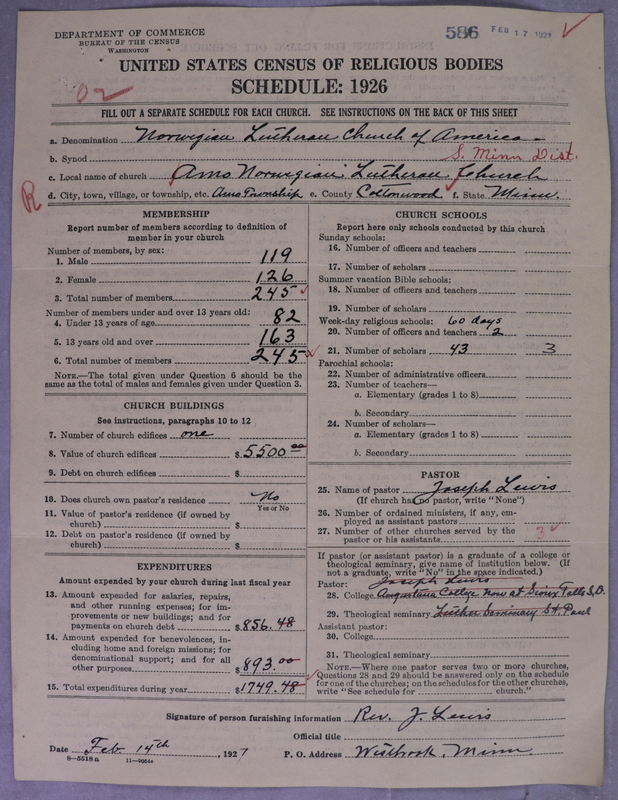 DEPARTMENT OF COMMERCE
BUREAU OF THE CENSUS
WASHINGTON
586 FEB 17 1927
02
UNITED STATES CENSUS OF RELIGIOUS BODIES
SCHEDULE: 1926
FILL OUT A SEPARATE SCHEDULE FOR EACH CHURCH. SEE INSTRUCTIONS ON THE BACK OF THIS SHEET
a. Denomination Norwegian Lutheran Church of America
b. Synod S. Minn Dist.
c. Local name of church Amo Norwegian Lutheran Church
R
d. City, town, village, or township, etc. Amo Township e. County Cottonwood f. State Minn.
MEMBERSHIP
Report number of members according to definition of
member in your church
Number of members, by sex:
1. Male 119
2. Female 126
3. Total number of members 245
Number of members under and over 13 years old:
4. Under 13 years of age 82
5. 13 years old and over 163
6. Total number of members 245
NOTE.—The total given under Question 6 should be
same as the total of males and females given under Question 3.
CHURCH BUILDINGS
See instructions, paragraphs 10 to 12
7. Number of church edifices one
8. Value of church edifices $ 5500.00
9. Debt on church edifices $
10. Does church own pastor's residence No
Yes or No
11. Value of pastor's residence (if owned by
church) $
12. Debt on pastor's residence (if owned by
church) $
EXPENDITURES
Amount expended by your church during last fiscal year
13. Amount expended for salaries, repairs,
and other running expenses; for im-
provements or new buildings; and for
payments on church debt $ 856.48
14. Amount expended for benevolences, in-
cluding home and foreign missions; for
denominational support; and for all
other purposes $ 893.00
15. Total expenditures during year $ 1749.48
CHURCH SCHOOLS
Report here only schools conducted by this church
Sunday schools:
16. Number of officers and teachers
17. Number of scholars
Summer vacation Bible schools:
18. Number of officers and teachers
19. Number of scholars
Week-day religious schools: 60 days
20. Number of officers and teachers 2
21. Number of scholars 43 3
Parochial schools:
22. Number of administrative officers
23. Number of teachers—
a. Elementary (grades 1 to 8)
b. Secondary
24. Number of scholars—
a. Elementary (grades 1 to 8)
b. Secondary
PASTOR
25. Name of pastor Joseph Lewis
(If church has no pastor, write "None")
26. Number of ordained ministers, if any, em-
ployed as assistant pastors
27. Number of other churches served by the
pastor or his assistants 3
If pastor (or assistant pastor) is a graduate of a college or
theological seminary, give name of institution below. (If
not a graduate, write "No" in the space indicated.)
Pastor: Joseph Lewis
28. College Augustana College now at Sioux Falls S.D.
29. Theological seminary Luther Seminary St. Paul
Assistant pastor:
30. College
31. Theological seminary
NOTE.—Where one pastor serves two or more churches,
Questions 28 and 29 should be answered only on the schedule
for one of the churches; on the schedules for the other churches,
write "See schedule for church."
Signature of person furnishing information Rev. J. Lewis
Official title
Date Feb. 14th, 1927 P. O. Address Westbrook, Minn.
8—5518 a